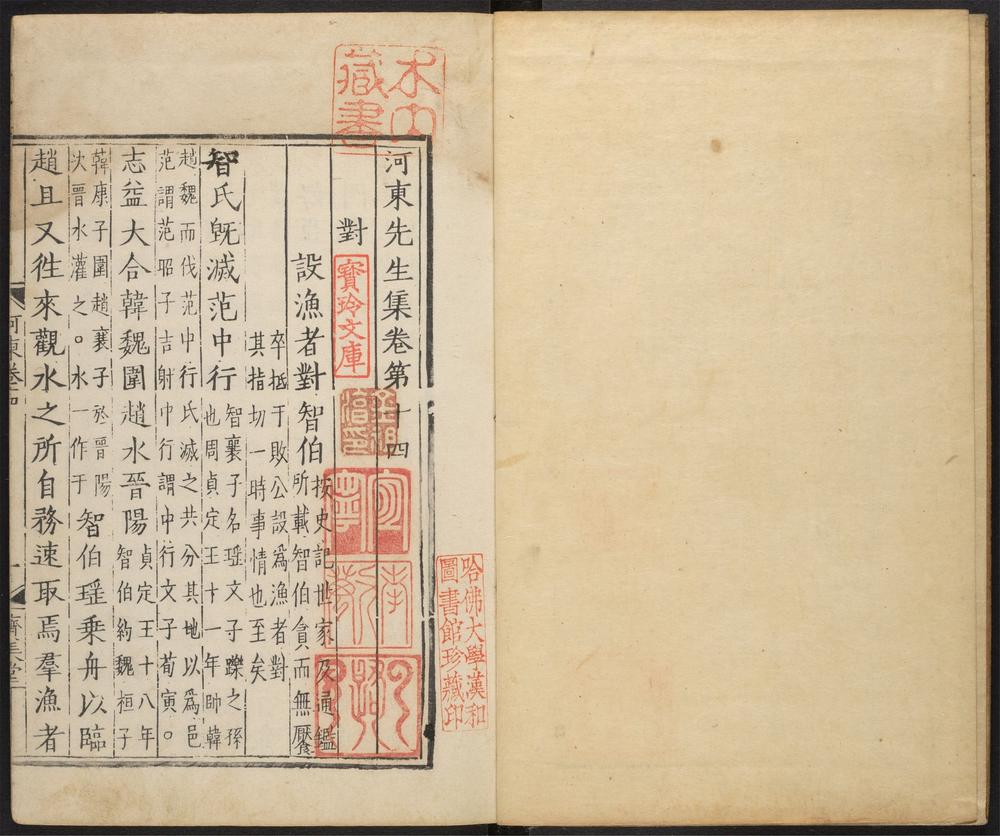 河東先生集卷第十四
對
設漁者對智伯
按史記世家及通鑑
所載智伯貪而無饜
卒抵于敗公設為漁者對
其指切一時事情也至矣
智氏旣滅范中行
智襄子名瑶文子躒之孫
也周貞定王十一年帥韓
趙魏而伐范中行氏滅之共分其地以為邑
范謂范昭子吉射中行謂中行文子荀寅。
志益大合韓魏圍趙水晉陽
貞定王十八年
智伯約魏桓子
韓康子圍趙襄子於晉陽
決晉水灌之。水一作于
智伯瑶乗舟以臨
趙且又徃來觀水之所自務速取焉羣漁者
河東卷十四
一
濟美堂
木内
藏書
寳玲文庫
李
哈佛大學漢和
圖書館珍藏印